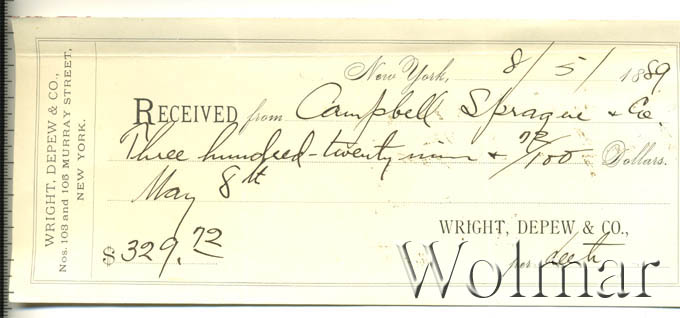 WRIGHT, DEPEW & CO.,
Nos. 103 and 105 MURRAY STREET,
NEW YORK.
New York, 8/5/1889
RECEIVED from Campbell Sprague & Co.
Three hundred-twenty nine & 72/100 Dollars.
May 8th
WRIGHT, DEPEW & CO.,
$329.72
per
Wolmar